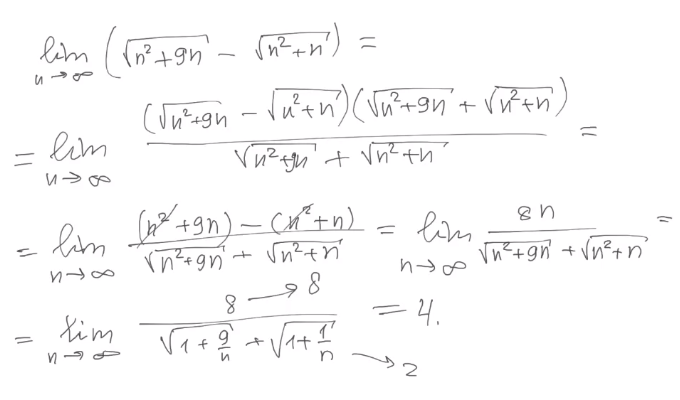 lim n→∞ (√(n²+9n) − √(n²+n)) =
= lim n→∞ (√(n²+9n) − √(n²+n))(√(n²+9n) + √(n²+n)) / (√(n²+9n) + √(n²+n)) =
= lim n→∞ ((n²+9n) − (n²+n)) / (√(n²+9n) + √(n²+n)) = lim n→∞ 8n / (√(n²+9n) + √(n²+n)) =
= lim n→∞ 8 → 8 / (√(1+9/n) + √(1+1/n)) → 2 = 4.